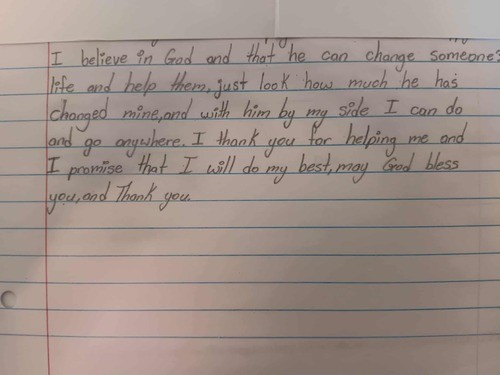 I believe in God and that he can change someones
life and help them, just look how much he has
changed mine, and with him by my side I can do
and go anywhere. I thank you for helping me and
I promise that I will do my best, may God bless
you, and Thank you.